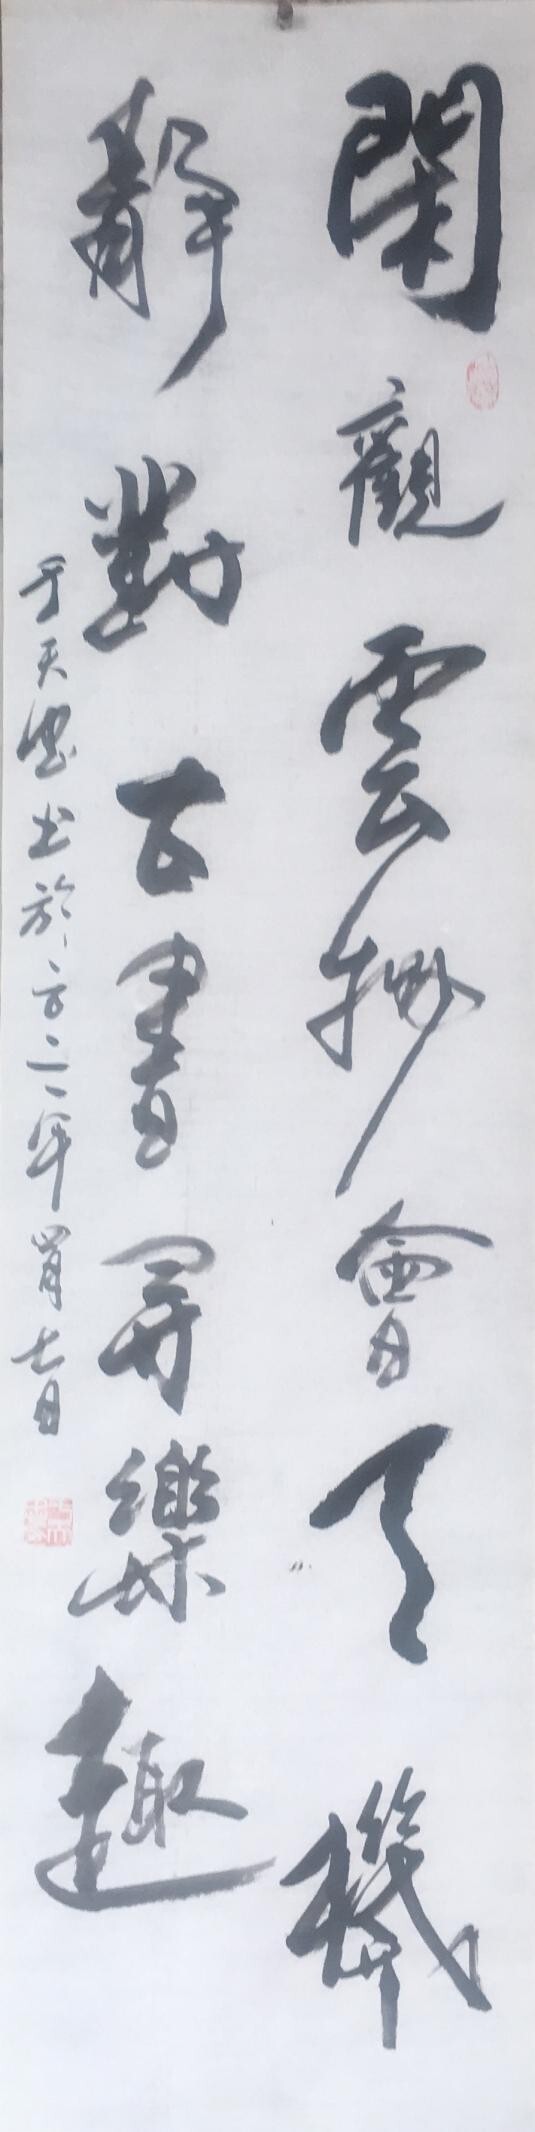 閑觀雲物會天機
靜對古書尋樂趣
于天
書於二〇二一年四月十七日